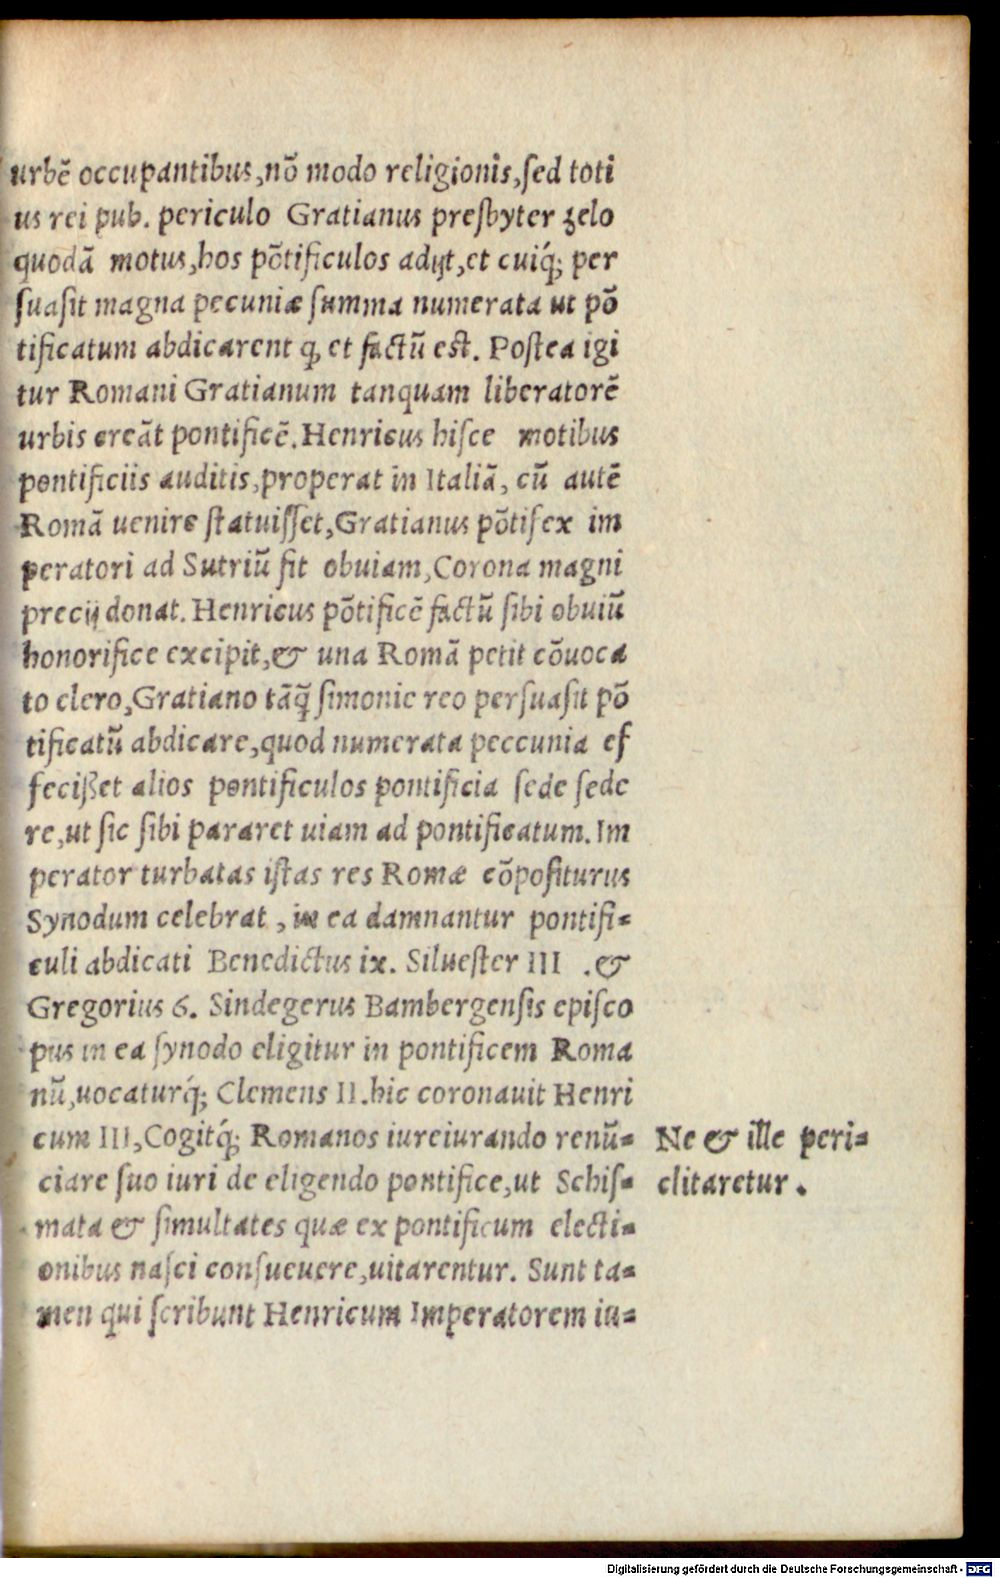 urbē occupantibus,nō modo religionis,ſed toti
us rei pub. periculo Gratianus preſbyter zelo
quodā motus,hos pōtificulos adijt,et cuiq́; per
ſuaſit magna pecuniæ ſumma numerata ut pō
tificatum abdicarent q, et factū est. Poſtea igi
tur Romani Gratianum tanquam liberatorē
urbis creāt pontificē.Henricus hiſce motibus
pontificiis auditis,properat in Italiā, cū autē
Romā uenire ſtatuiſſet,Gratianus pōtifex im
peratori ad Sutriū fit obuiam,Corona magni
precij donat. Henricus pōtificē factū ſibi obuiū
honorifice excipit,& una Romā petit cōuoca
to clero,Gratiano tāq̄ ſimonie reo perſuaſit pō
tificatū abdicare,quod numerata peccunia ef
fecißet alios pontificulos pontificia ſede ſede
re,ut ſic ſibi pararet uiam ad pontificatum.Im
perator turbatas iſtas res Romæ cōpoſiturus
Synodum celebrat , in ea damnantur pontifi=
culi abdicati Benedictus ix. Silueſter III .&
Gregorius 6. Sindegerus Bambergenſis epiſco
pus in ea ſynodo eligitur in pontificem Roma
nū,uocaturq́; Clemens II.hic coronauit Henri
cum III,Cogitq́; Romanos iureiurando renū=
ciare ſuo iuri de eligendo pontifice,ut Schiſ=
mata & ſimultates quæ ex pontificum electi=
onibus naſci conſueuere,uitarentur. Sunt ta=
men qui ſcribunt Henricum Imperatorem iu=
Ne & ille peri=
clitaretur.
Digitalisierung gefördert durch die Deutsche Forschungsgemeinschaft - DFG